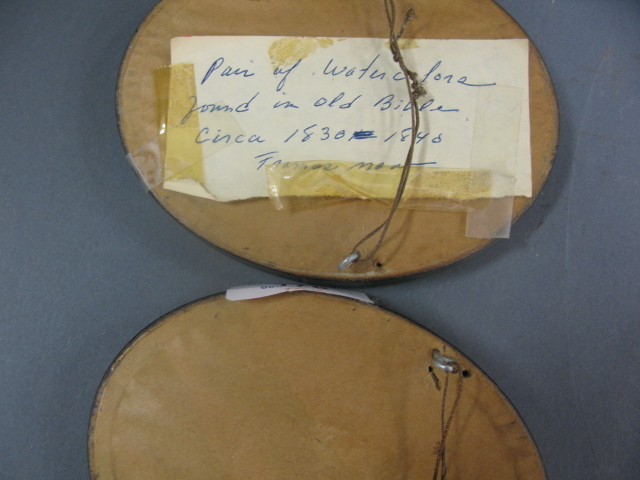 Pair of Watercolors
found in old Bible
Circa 1830 - 1840
Frames new